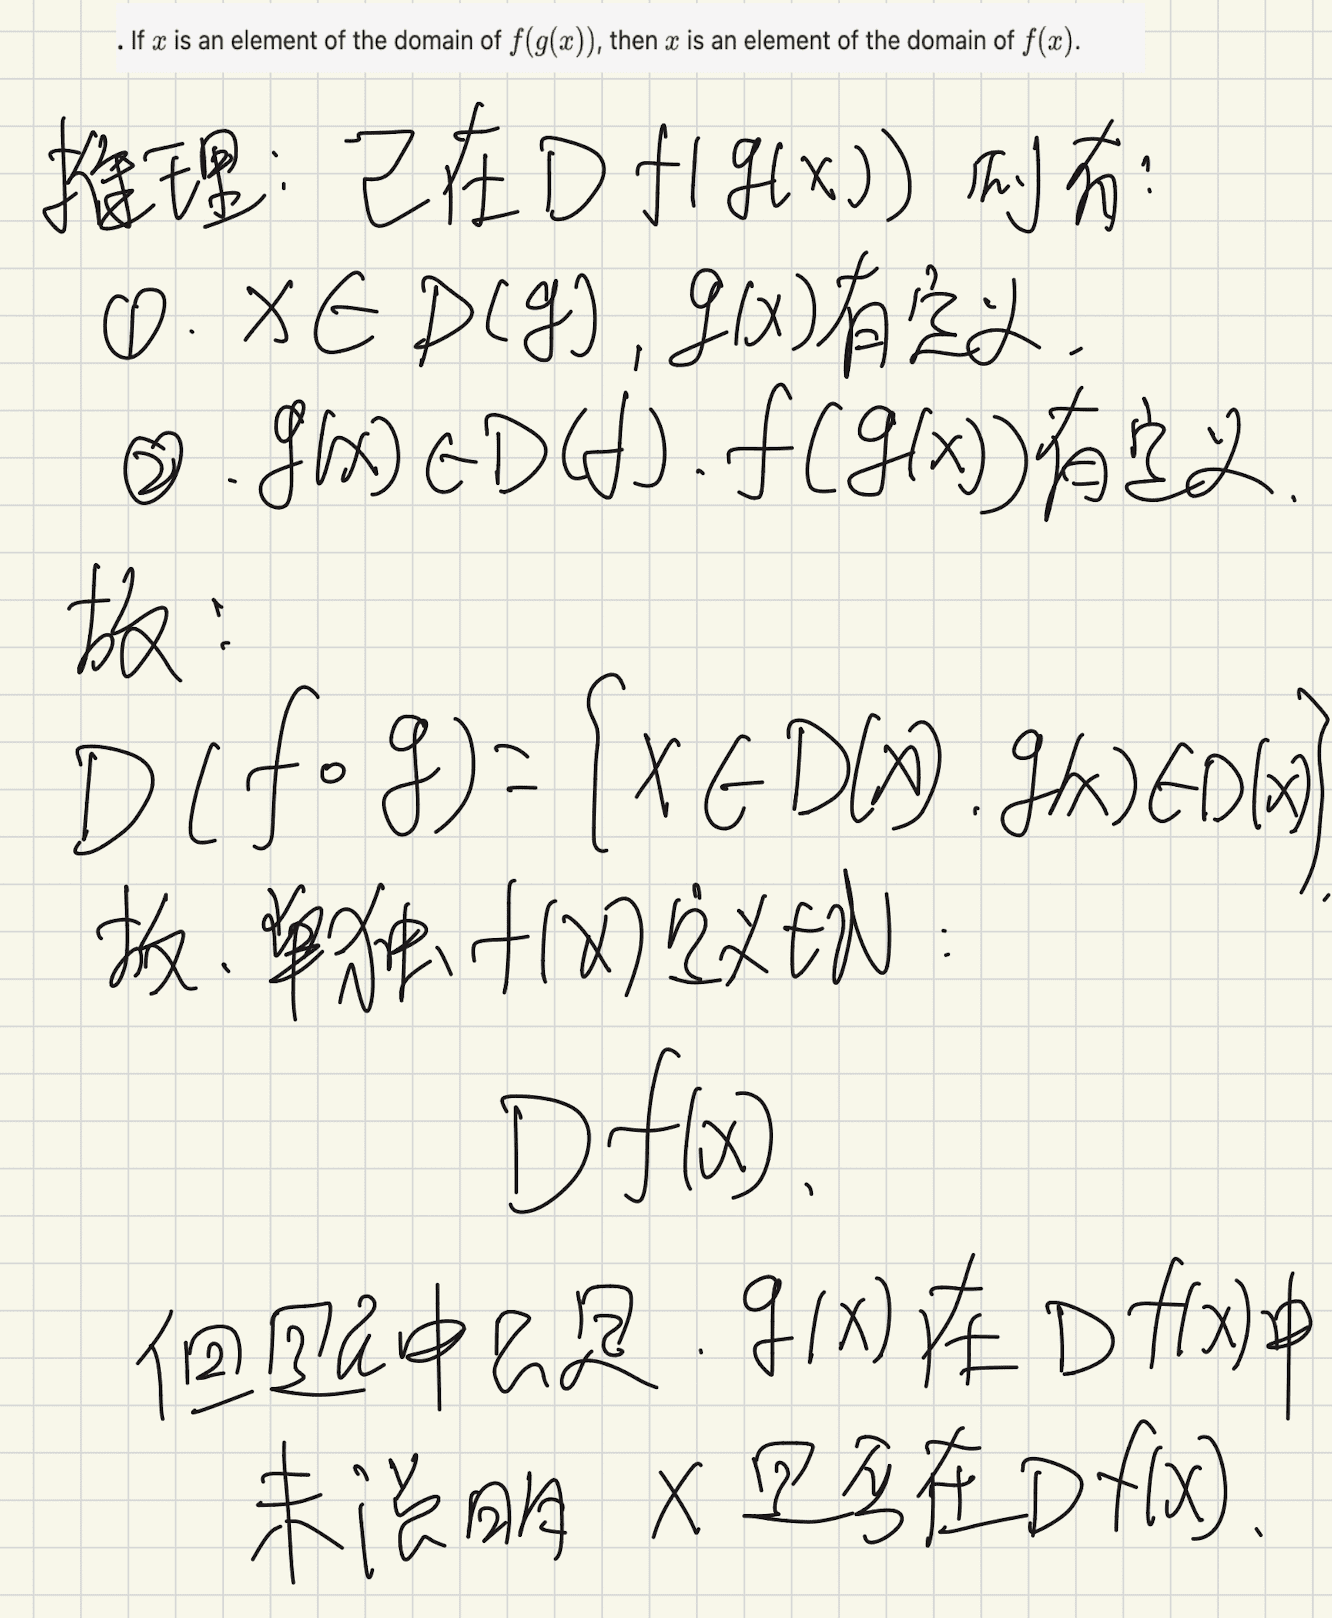 . If x is an element of the domain of f(g(x)), then x is an element of the domain of f(x).
推理: 已在 D f(g(x)) 则有:
①. x∈D(g), g(x)有定义.
②. g(x)∈D(f). f(g(x))有定义.
故:
D(f∘g)={x∈D(x). g(x)∈D(x)}.
故、单独、f(x)定义域:
D f(x).
但题中已是. g(x)在 D f(x)中
未说明 x 是否在 D f(x).